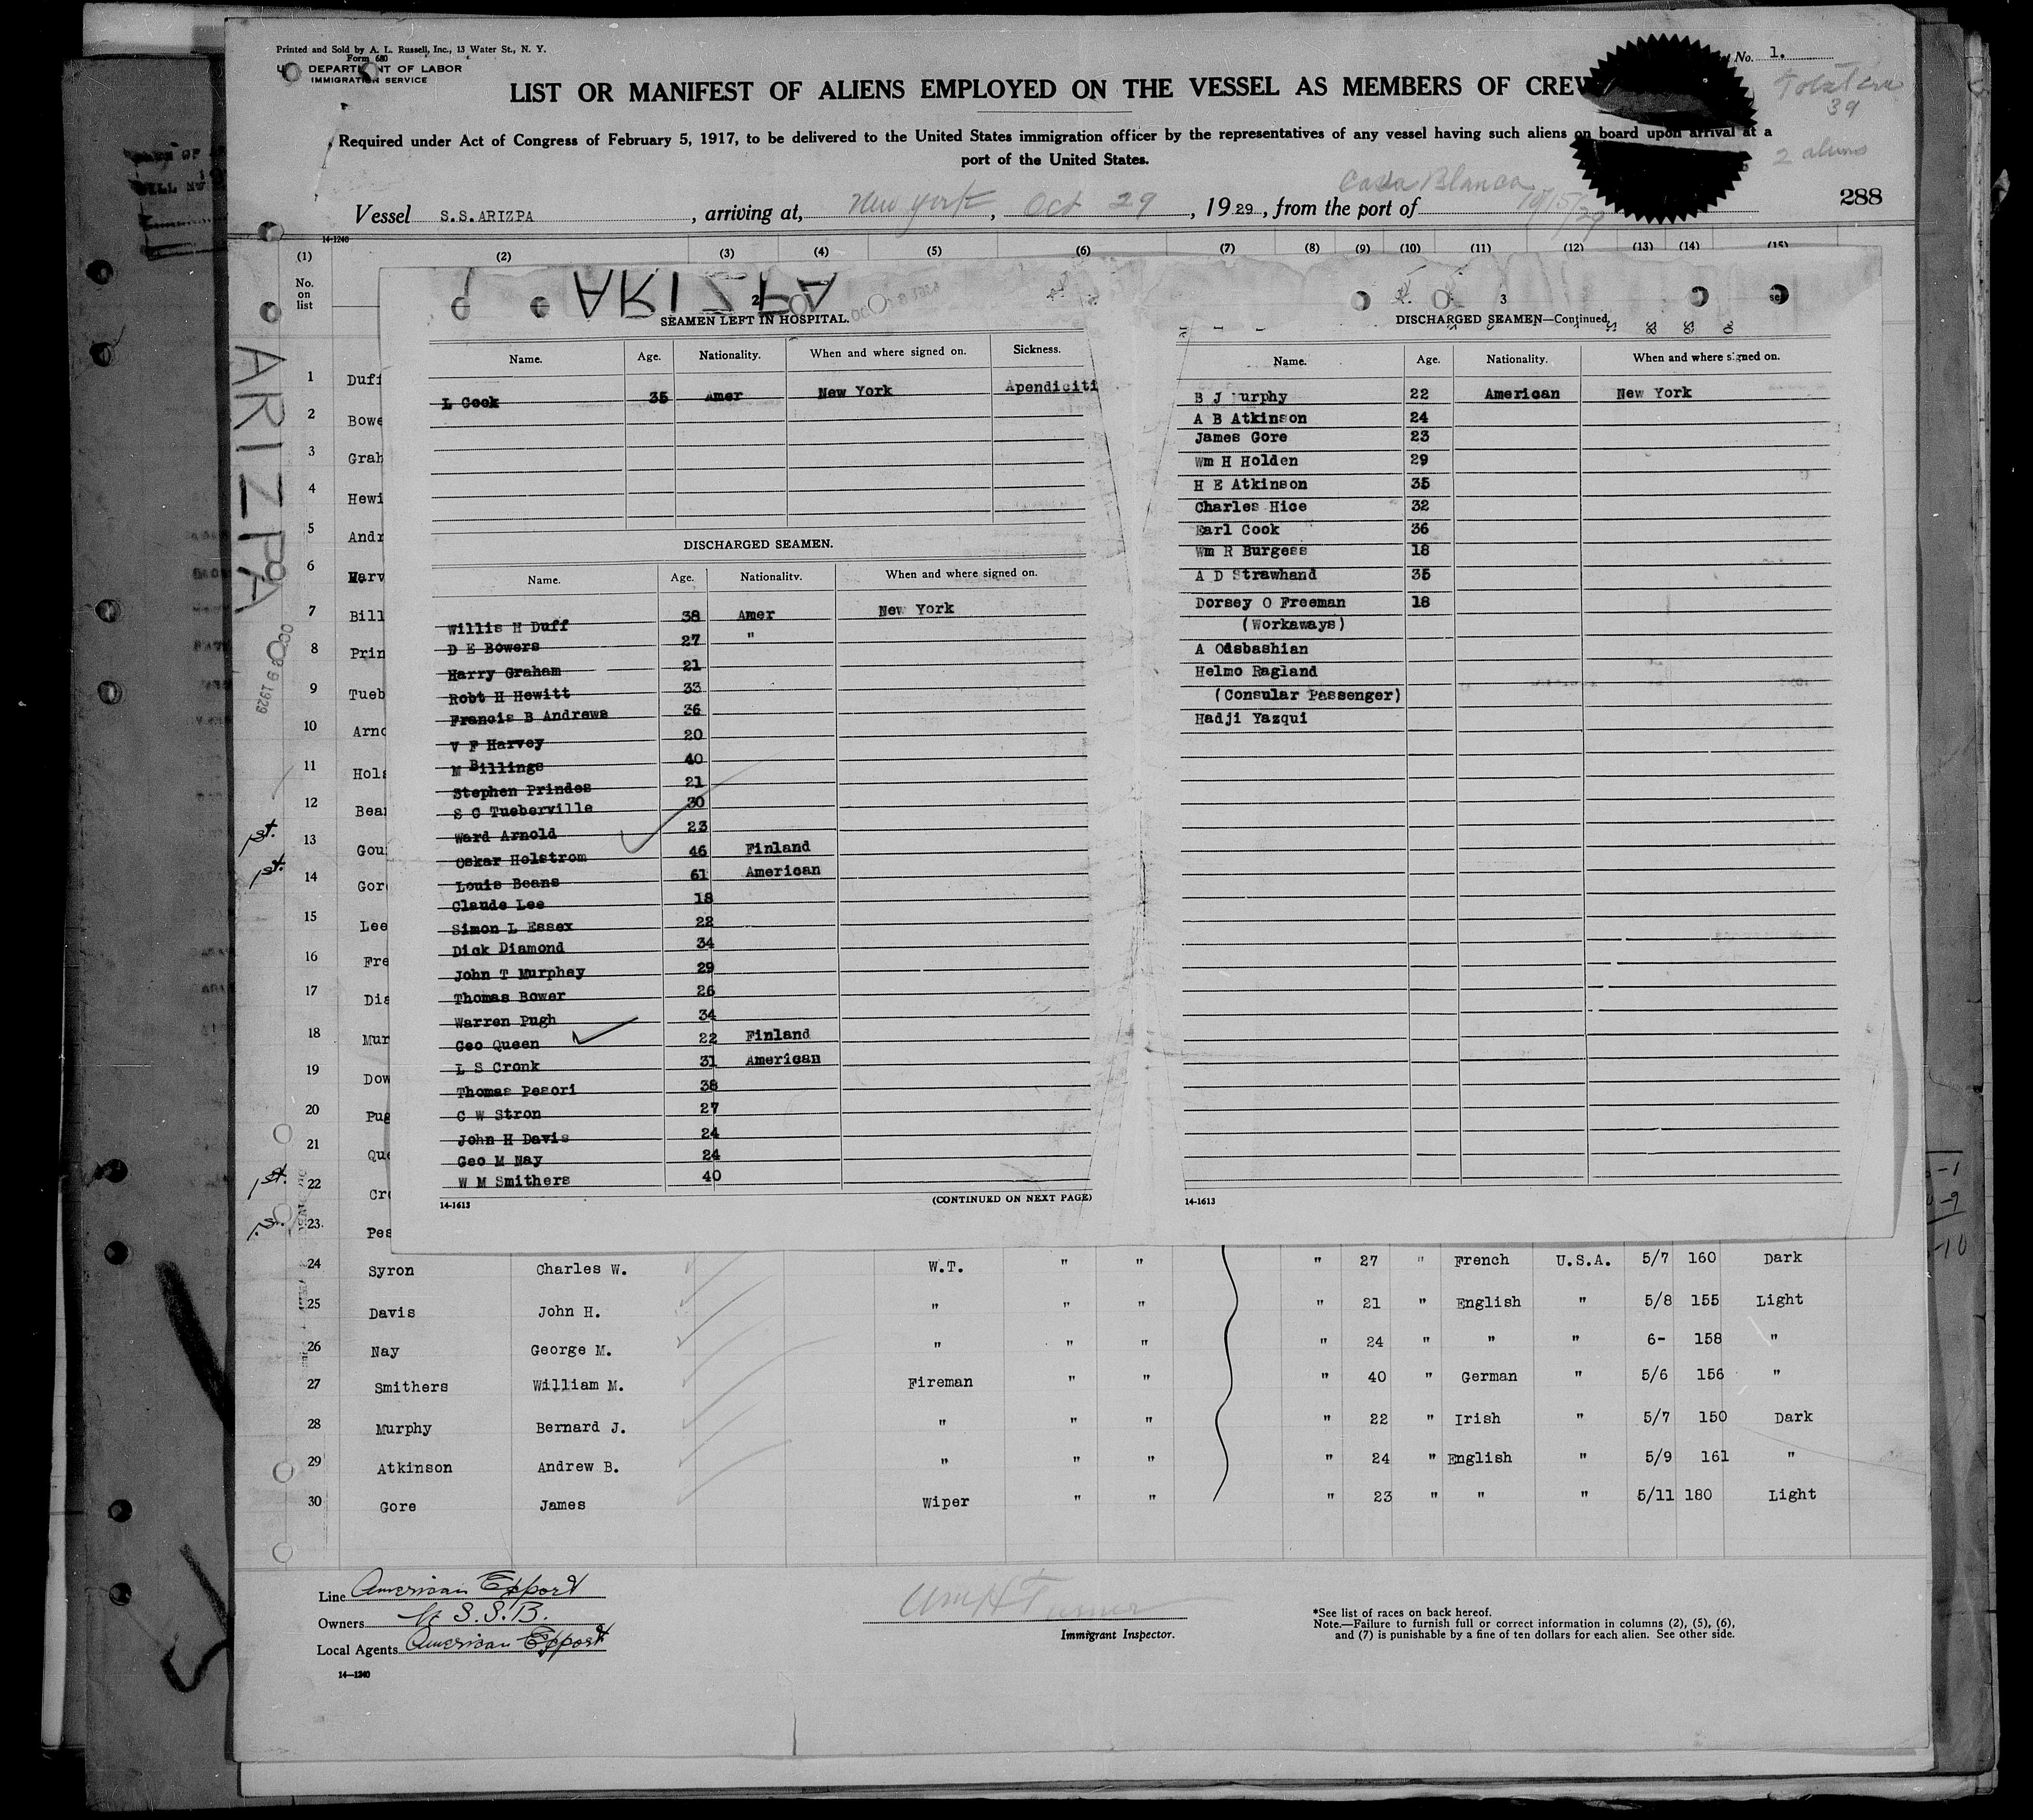 Printed and Sold by A. L. Russell, Inc., 13 Water St., N. Y.
Form 680
DEPARTMENT OF LABOR
IMMIGRATION SERVICE
No. 1.
LIST OR MANIFEST OF ALIENS EMPLOYED ON THE VESSEL AS MEMBERS OF CREW
39
2 aliens
Required under Act of Congress of February 5, 1917, to be delivered to the United States immigration officer by the representatives of any vessel having such aliens on board upon arrival at a
port of the United States.
Casa Blanca
Vessel S.S.ARIZPA, arriving at, New York, Oct 29, 1929, from the port of 10/15/29
288
14-1240
(1) (2) (3) (4) (5) (6) (7) (8) (9) (10) (11) (12) (13) (14) (15)
No. on list
ARIZPA
ARIZPA
2
SEAMEN LEFT IN HOSPITAL.
Name. Age. Nationality. When and where signed on. Sickness.
L Cook 35 Amer New York Apendiciti
DISCHARGED SEAMEN.
Name. Age. Nationality. When and where signed on.
Willis H Duff 38 Amer New York
D E Bowers 27 "
Harry Graham 21
Robt H Hewitt 33
Francis B Andrews 36
V F Harvey 20
M Billings 40
Stephen Prindes 21
S C Tueberville 30
Ward Arnold 23
Oskar Holstrom 46 Finland
Louis Beans 61 American
Claude Lee 18
Simon L Essex 22
Dick Diamond 34
John T Murphey 29
Thomas Bower 26
Warren Pugh 34
Geo Queen 22 Finland
L S Cronk 31 American
Thomas Pesori 38
C W Stron 27
John H Davis 24
Geo M Nay 24
W M Smithers 40
14-1613
(CONTINUED ON NEXT PAGE)
3
DISCHARGED SEAMEN—Continued.
Name. Age. Nationality. When and where signed on.
B J urphy 22 American New York
A B Atkinson 24
James Gore 23
Wm H Holden 29
H E Atkinson 35
Charles Hice 32
Earl Cook 36
Wm R Burgess 18
A D Strawhand 35
Dorsey O Freeman 18
(Workaways)
A Odsbashian
Helmo Ragland
(Consular Passenger)
Hadji Yazqui
14-1613
1 Duff
2 Bowe
3 Grah
4 Hewi
5 Andr
6 Harv
7 Bill
8 Prin
9 Tueb
10 Arno
11 Hols
12 Bea
1st. 13 Gou
1st. 14 Gor
15 Lee
16 Fre
17 Dia
18 Mur
19 Dow
20 Pug
21 Que
1st. 22 Cro
1st. 23. Pes
24 Syron Charles W. W.T. " " " 27 " French U.S.A. 5/7 160 Dark
25 Davis John H. " " " " 21 " English " 5/8 155 Light
26 Nay George M. " " " " 24 " " " 6- 158 "
27 Smithers William M. Fireman " " " 40 " German " 5/6 156 "
28 Murphy Bernard J. " " " " 22 " Irish " 5/7 150 Dark
29 Atkinson Andrew B. " " " " 24 " English " 5/9 161 "
30 Gore James Wiper " " " 23 " " " 5/11 180 Light
Line American Export
Owners U.S.S.B.
Local Agents American Export
14—1240
Wm H Turner
Immigrant Inspector.
*See list of races on back hereof.
Note.—Failure to furnish full or correct information in columns (2), (5), (6),
and (7) is punishable by a fine of ten dollars for each alien. See other side.